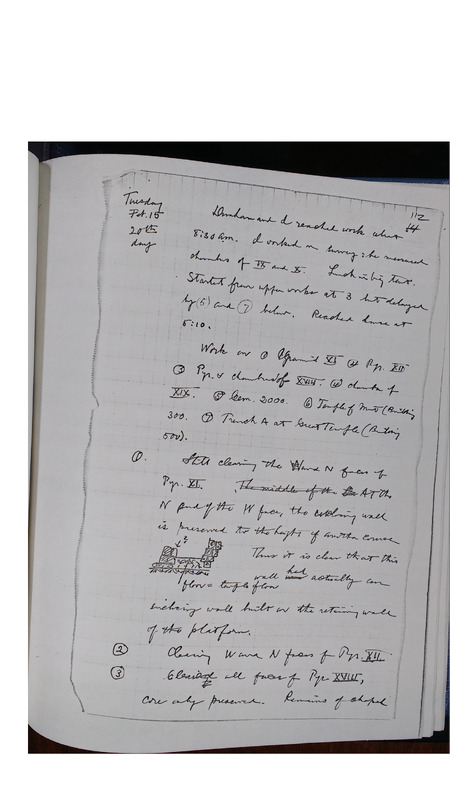 Tuesday
Feb. 15
20th
day
112
14
Dunham and I reached work about
8:30 am. I worked on survey; he measured
chambers of IX and X. Lunch in big tent.
Started from upper works at 3 but delayed
by (6) and (7) below. Reached house at
5:10.
Work on (1) Pyramid XI (2) Pyr. XII
(3) Pyr. & chambers of XVIII. (4) chamber of
XIX. (5) Cem. 2000. (6) Temple of Mut (Building
300. (7) Trench A at Great Temple (Building
500).
(1). Still clearing the W and N faces of
Pyr. XI. The middle of the At the
N end of the W face, the enclosing wall
is preserved to the height of another course
?
Thus it is clear that this
wall had actually an
floor = temple floor
enclosing wall built on the retaining wall
of the platform.
(2) Clearing W and N faces of Pyr. XII
(3) Cleared all faces of Pyr XVIII,
core only preserved. Remains of chapel